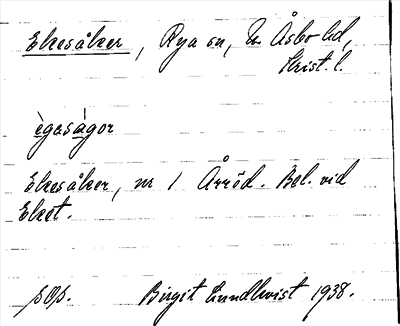 Ekesåker, Rya sn, N. Åsbo hd,
Krist. l.
ègasàgor
Ekesåker, nr 1 Årröd. Bel. vid
Eket.
Birgit Lundkvist 1938.